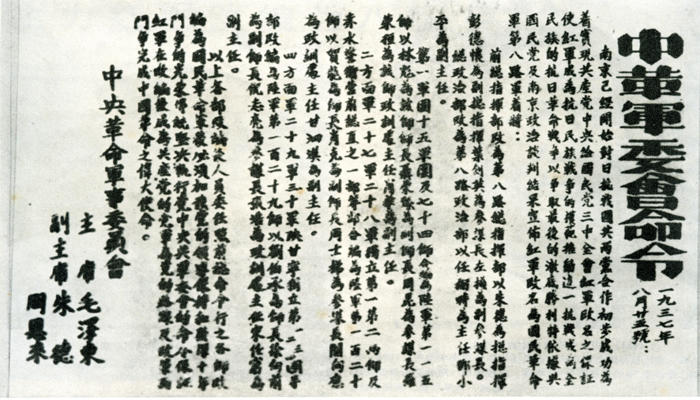 中革軍委會命令
一九三七年
八月廿五號：
南京已經開始對日抗戰國共兩黨合作初步成功為
着實現共產党中央給國民党三中全會紅軍改名之保証
使紅軍成為抗日民族戰爭的模範推動這一抗戰成為全
民族的抗日革命戰爭以爭取最後的澈底勝利特依據與
國民党及南京政治談判結果宣佈紅軍改名為國民革命
軍第八路軍着將：
前總指揮部改為第八路總指揮部以朱德為總指揮
彭德懷為副總指揮葉劍英為參謀長左權為副參謀長。
總政治部改為第八路政治部以任弼時為主任鄧小
平為副主任。
第一軍團十五軍團及七十四師合編為陸軍第一一五
師以林彪為該師師長聶榮臻為副師長周昆為參謀長羅
榮桓為該師政訓處主任蕭華為副主任。
二方面軍二十七軍二十八軍獨立第一第二兩師及
赤水警衛營前總直之一部等部合編為陸軍第一百二十
師以賀龍為師長蕭克為副師長周士梯為參謀長關向應
為政訓處主任甘泗淇為副主任。
四方面軍二十九軍三十軍陝甘寧獨立第一二三四團等
部改編為陸軍第一百二十九師以劉伯承為師長徐向前
為副師長倪志亮為參謀長張浩為政訓處主任宋任窮為
副主任。
以上各部改編後人員委任照前總命令行之各師改
編為國民革命軍後必須加強党的領導保持和發揮十年
鬥爭的光榮傳統堅決執行党中央與軍委會的命令保証
紅軍在改編後成為共產党的党軍為党的路線及政策而
鬥爭完成中國革命之偉大使命。
中央革命軍事委員会
主席毛澤東
副主席朱德
周恩來